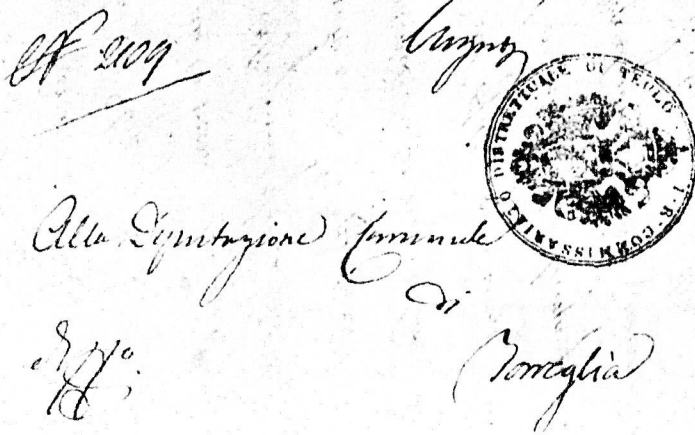 N° 2109
I. R. COMMISSARIATO DISTRETTUALE DI TEOLO
Alla Deputazione Comunale
di
Torreglia